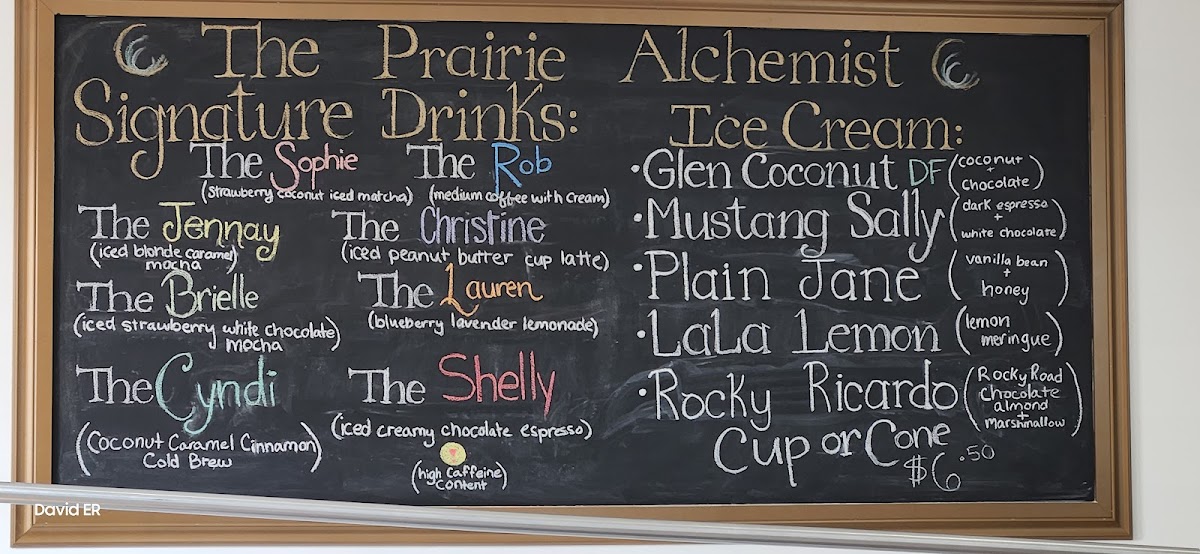 The Prairie Alchemist
Signature Drinks:
The Sophie
(strawberry coconut iced matcha)
The Rob
(medium coffee with cream)
The Jennay
(iced blonde caramel)
mocha
The Christine
(iced peanut butter cup latte)
The Brielle
(iced strawberry white chocolate)
mocha
The Lauren
(blueberry lavender lemonade)
The Cyndi
(Coconut Caramel Cinnamon
Cold Brew)
The Shelly
(iced creamy chocolate espresso)
(high caffeine
content)
Ice Cream:
• Glen Coconut DF (coconut
+
chocolate)
• Mustang Sally (dark espresso
+
white chocolate)
• Plain Jane (vanilla bean
+
honey)
• LaLa Lemon (lemon
meringue)
• Rocky Ricardo (Rocky Road
chocolate
almond
+
Marshmallow)
Cup or Cone
$6.50
David ER